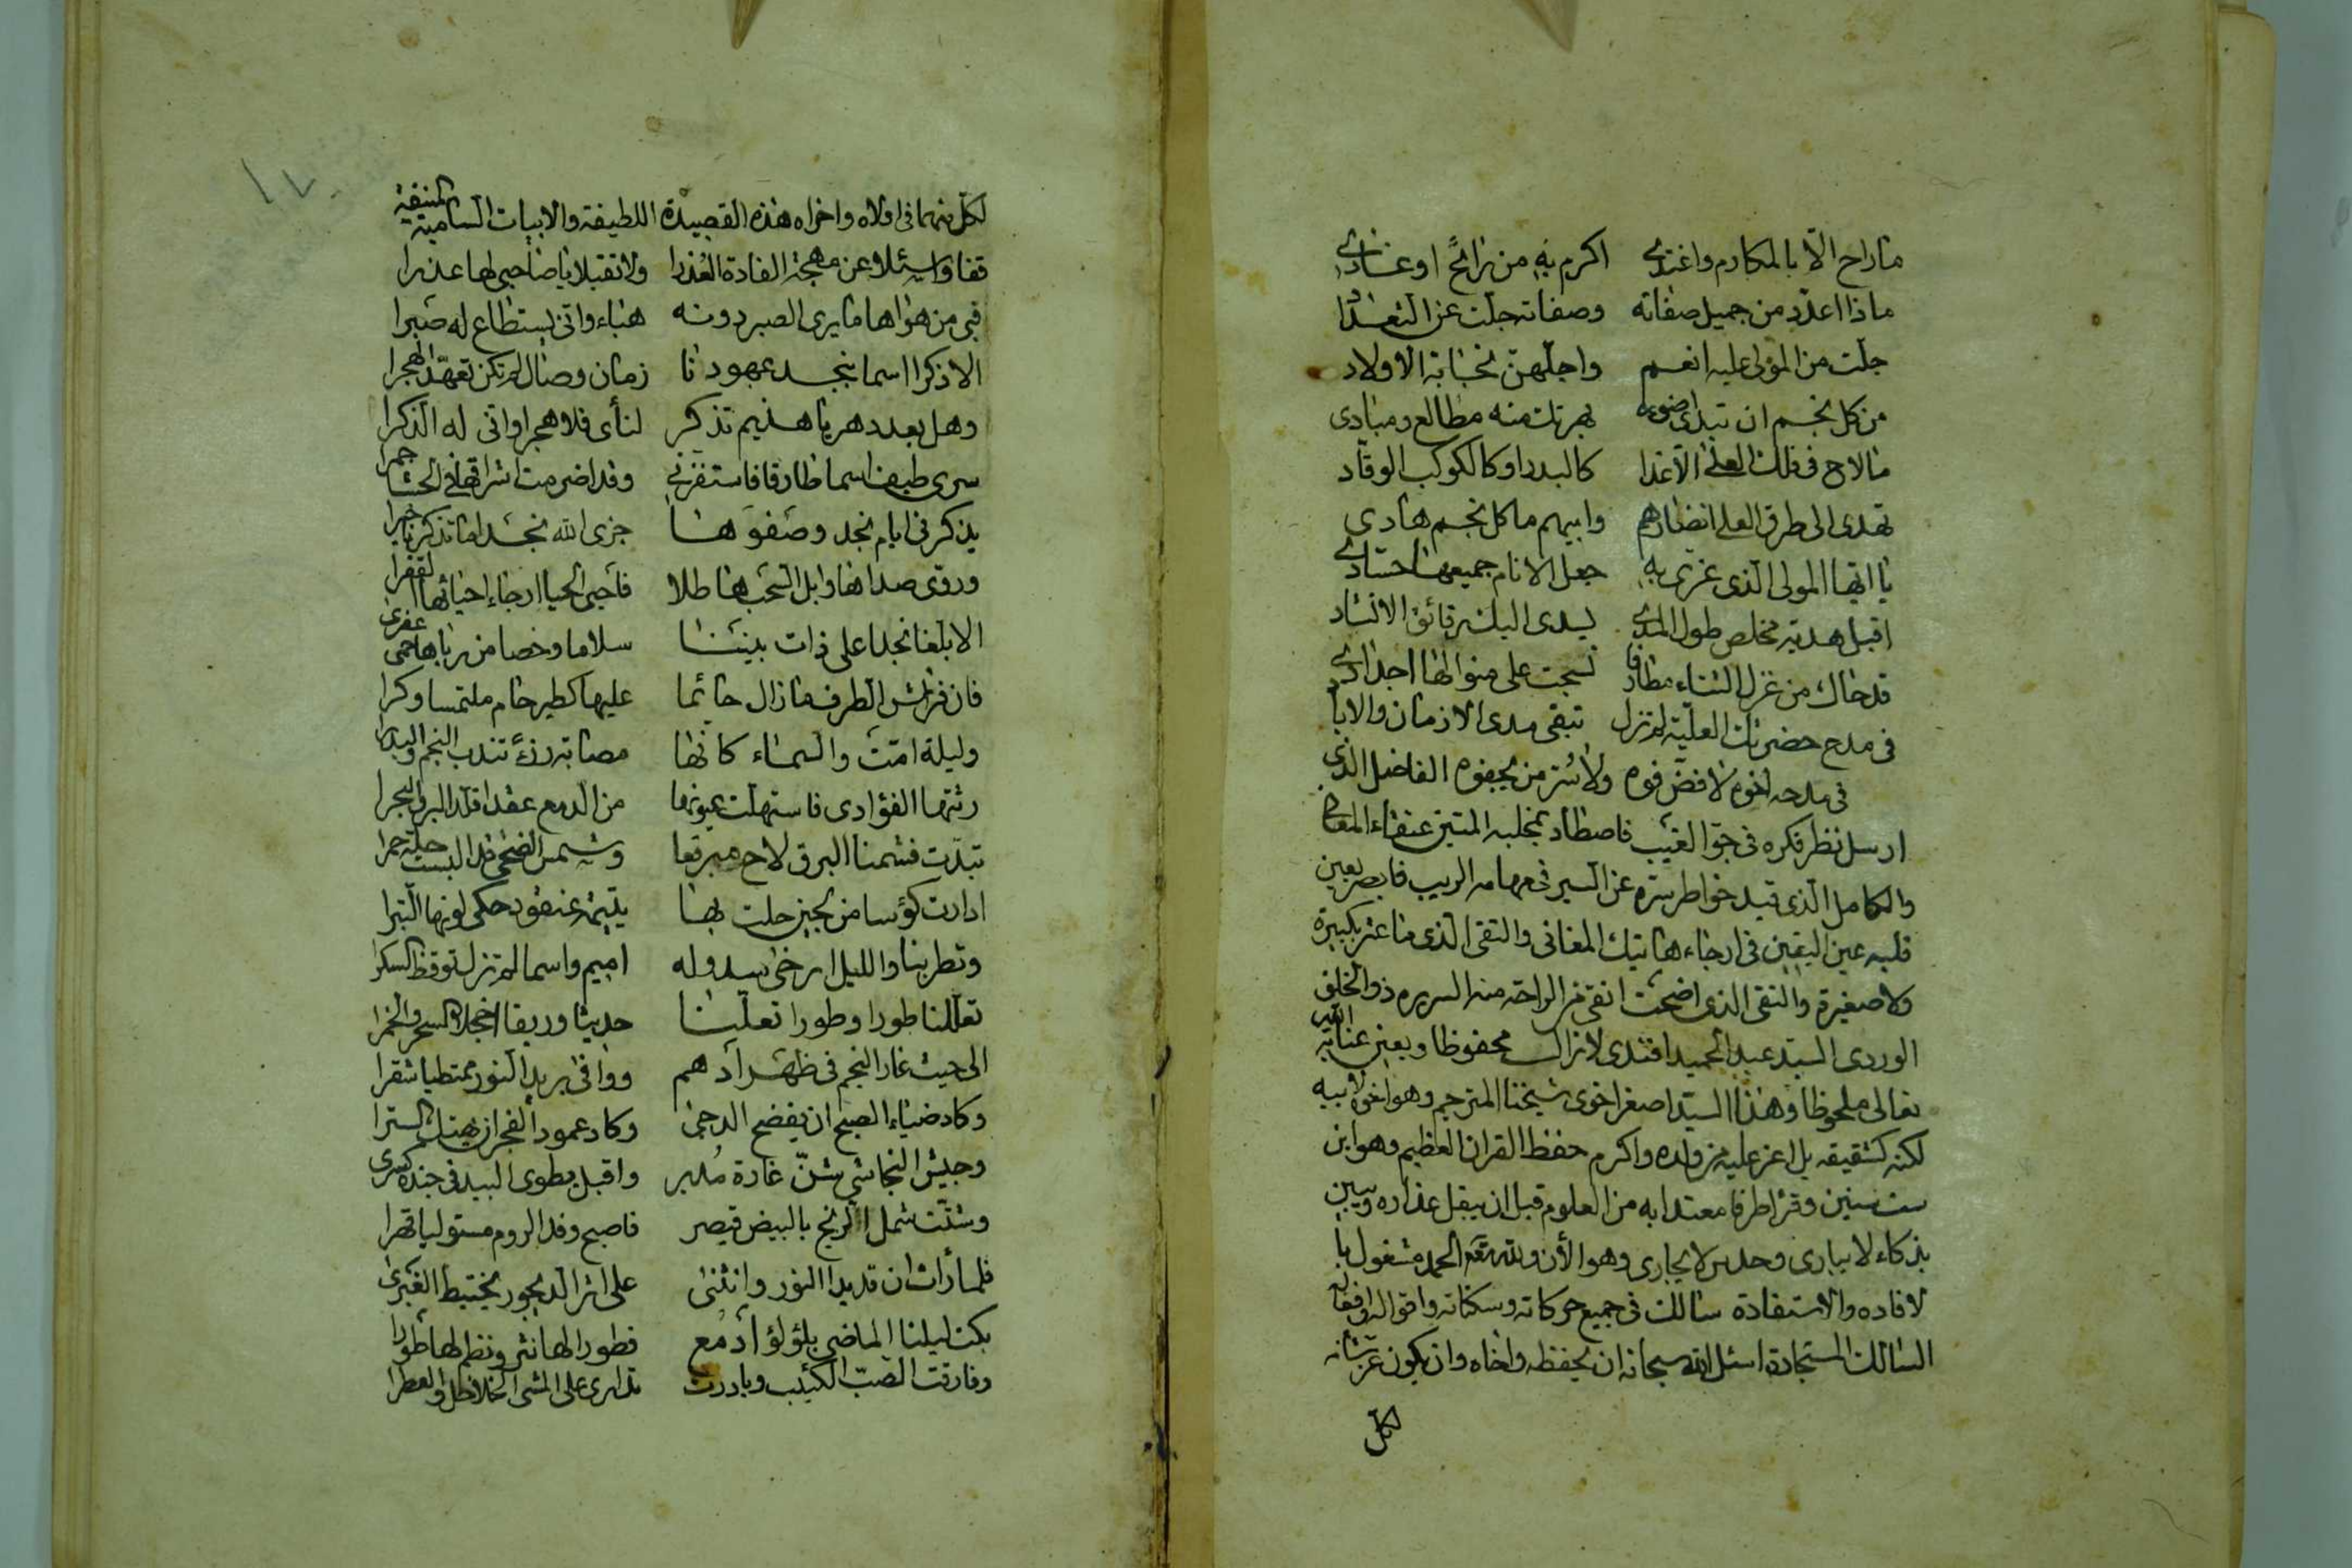 ماراح الا بالمكارم واغتدى اكرم به من رائح او غادى
ماذا اعدد من جميل صفاته وصفاته جلت عن التعداد
جلت من المولى عليه انعم واجلهن نجابة الاولاد
من كل نجم ان تبدى ضوءه بهرتك منه مطالع ومبادى
مالاح فى فلك العلى الا غدا كالبدر او كالكوكب الوقاد
تهدى الى طرق العلى انضارهم وابيهم ما كل نجم هادى
يا ايها المولى الذى غرى به جعل الانام جميعها حسادى
اقبل هدية مخلص طول المدى يسدى اليك رقائق الانشاد
قد حاك من غزل الثناء مطارفا نسجت على منوالها اجدادى
فى مدح حضرتك العلية لم تزل تبقى مدى الازمان والاباد
فى مدحه اخوه لا فض فوه ولا سر من يجفوه الفاضل الذى
ارسل نظر فكره فى جو الغيب فاصطاد بمخلبه المتين عنقاء المعانى
والكامل الذى قيد خواطر سره عن السير فى مهامه الريب فابصر بعين
قلبه عين اليقين فى ارجاء هاتيك المغانى والتقى الذى ما عثر بكبيرة
ولا صغيرة والنقى الذى اضحت انقى من الراحة منه السريره ذو الخلق
الوردى السيد عبد الحميد افندى لا زال محفوظا وبعين عناية الله
تعالى ملحوظا وهذا السيد اصغر اخوى شيخنا المترجم وهو اخوه لابيه
لكنه كشقيقه بل اعز عليه من ولده واكرم حفظ القران العظيم وهو ابن
ست سنين وقرا طرفا معتدا به من العلوم قبل ان يبقل عذاره ويبين
بذكاء لا يبارى وحدس لا يجارى وهو الأن ولله تعالى الحمد مشغول با
لافاده والاستفادة سالك فى جميع حركاته وسكناته واقواله وافعاله
السالك المستجادة اسئل الله سبحانه ان يحفظه واخاه وان يكون عز شانه
لكل
لكل منهما فى اولاه واخراه هذه القصيدة اللطيفة والابيات السامية المنيفة
قفا واسئلا عن مهجة الغادة العذرا ولا تقبلا يا صاحبى لها عذرا
فبى من هواها ما يرى الصبر دونه هباء وانى يستطاع له صبرا
الا ذكرا اسما بنجد عهودنا زمان وصال لم تكن تعهد الهجرا
وهل بعد دهر يا هذيم تذكر لنأى فلا هجرا وانى له الذكرا
سرى طيف اسما طارقا فاستفزنى وقد اضرمت اشراقها فى الحشا جمرا
يذكرنى ايام نجد وصفوها جزى الله نجدا ما تذكرنا خيرا
وروى صداها وابل السحب هاطلا فاحيى الحيا ارجاء احيائها القفرا
الا بلغا نجدا على ذات بيننا سلاما وخصا من رباها حمى عفرى
فان فراش الطرف ما زال حائما عليها كطير حام ملتمسا وكرا
وليلة امت والسماء كانها مصابة رزء تندب النجم والبدرا
رثتها الغوادى فاستهلت عيونها من الدمع عقدا قلد البر والبحرا
تبدت فشمنا البرق لاح مبرقعا وشمس الضحى قد البست حلة حمرا
ادارت كؤسا من لجين حلت بها يتيمة عنقود حكى لونها التبرا
وتطربنا والليل ارخى سدوله اميم واسما لم تزل توقظ السكرا
تعللنا طورا وطورا تعلنا حديثا وريقا اخجلا السحر والخمرا
الى حيث غار النجم فى ظهر ادهم ووافى بريد النور ممتطيا شقرا
وكاد ضياء الصبح ان يفضح الدجى وكاد عمود الفجر ان يهتك السترا
وجيش النجاشى شن غارة مدبر واقبل يطوى البيد فى جنده كسرى
وشتت شمل الزنج بالبيض قيصر فاصبح وفد الروم مستوليا قهرا
فلما رأت ان قد بدا النور وانثنى على اثر الديجور يختبط الغبرى
بكت ليلنا الماضى بلؤلؤ ادمع فطورا لها نثر ونظم لها طورا
وفارقت الصب الكئيب وبادرت على المشى